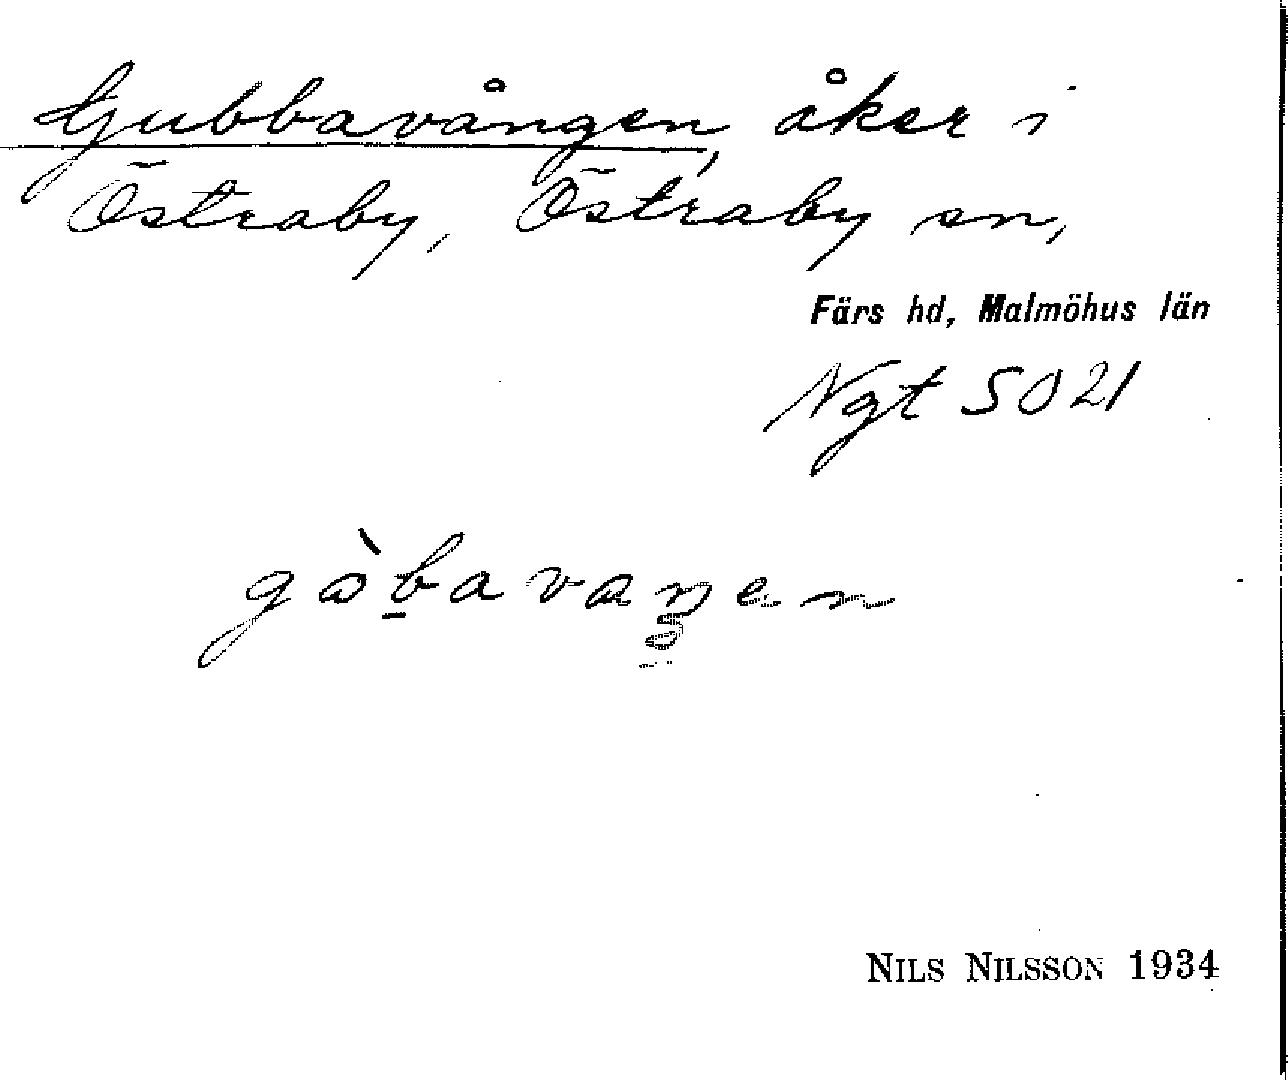 Gubbavången, åker i
Östraby, Östraby sn,
Färs hd, Malmöhus län
Ngt 5021
NILS NILSSON 1934